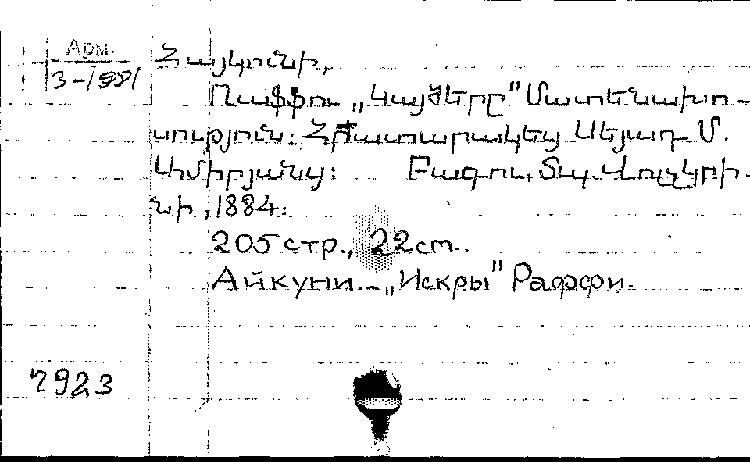 Арм.
3-1981
Հայկունի,
Րաֆֆու „Կայծերը” Մատենախօ-
սություն: Հրատարակեց Սեյադ Մ.
Ամիրյանց: Բագու, Տպ. Վոլչկորի-
նի, 1884:
205 стр., 22 cm..
Айкуни. - „Искры” Раффи.
7923